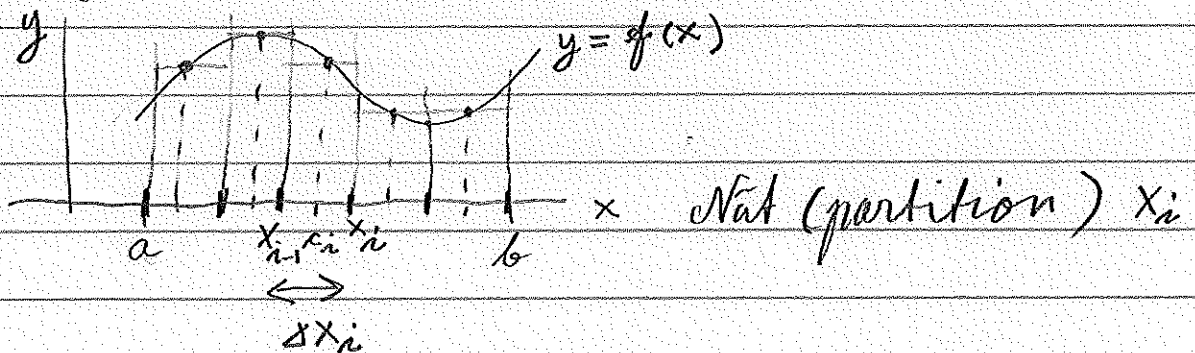 y
y = f(x)
x Nät (partition) xᵢ
a xᵢ₋₁ cᵢ xᵢ b
Δxᵢ